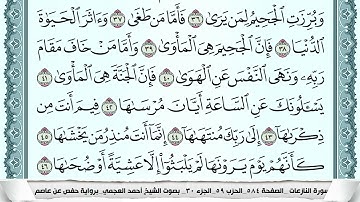 وَبُرِّزَتِ ٱلْجَحِيمُ لِمَن يَرَىٰ ٣٦ فَأَمَّا مَن طَغَىٰ ٣٧ وَءَاثَرَ ٱلْحَيَوٰةَ
ٱلدُّنْيَا ٣٨ فَإِنَّ ٱلْجَحِيمَ هِىَ ٱلْمَأْوَىٰ ٣٩ وَأَمَّا مَنْ خَافَ مَقَامَ
رَبِّهِۦ وَنَهَى ٱلنَّفْسَ عَنِ ٱلْهَوَىٰ ٤٠ فَإِنَّ ٱلْجَنَّةَ هِىَ ٱلْمَأْوَىٰ ٤١
يَسْـَٔلُونَكَ عَنِ ٱلسَّاعَةِ أَيَّانَ مُرْسَىٰهَا ٤٢ فِيمَ أَنتَ مِن
ذِكْرَىٰهَآ ٤٣ إِلَىٰ رَبِّكَ مُنتَهَىٰهَآ ٤٤ إِنَّمَآ أَنتَ مُنذِرُ مَن يَخْشَىٰهَا ٤٥
كَأَنَّهُمْ يَوْمَ يَرَوْنَهَا لَمْ يَلْبَثُوٓا۟ إِلَّا عَشِيَّةً أَوْ ضُحَىٰهَا ٤٦
سورة النازعات _ الصفحة ٥٨٤ _ الحزب ٥٩ _ الجزء ٣٠ _ بصوت الشيخ أحمد العجمي _ برواية حفص عن عاصم